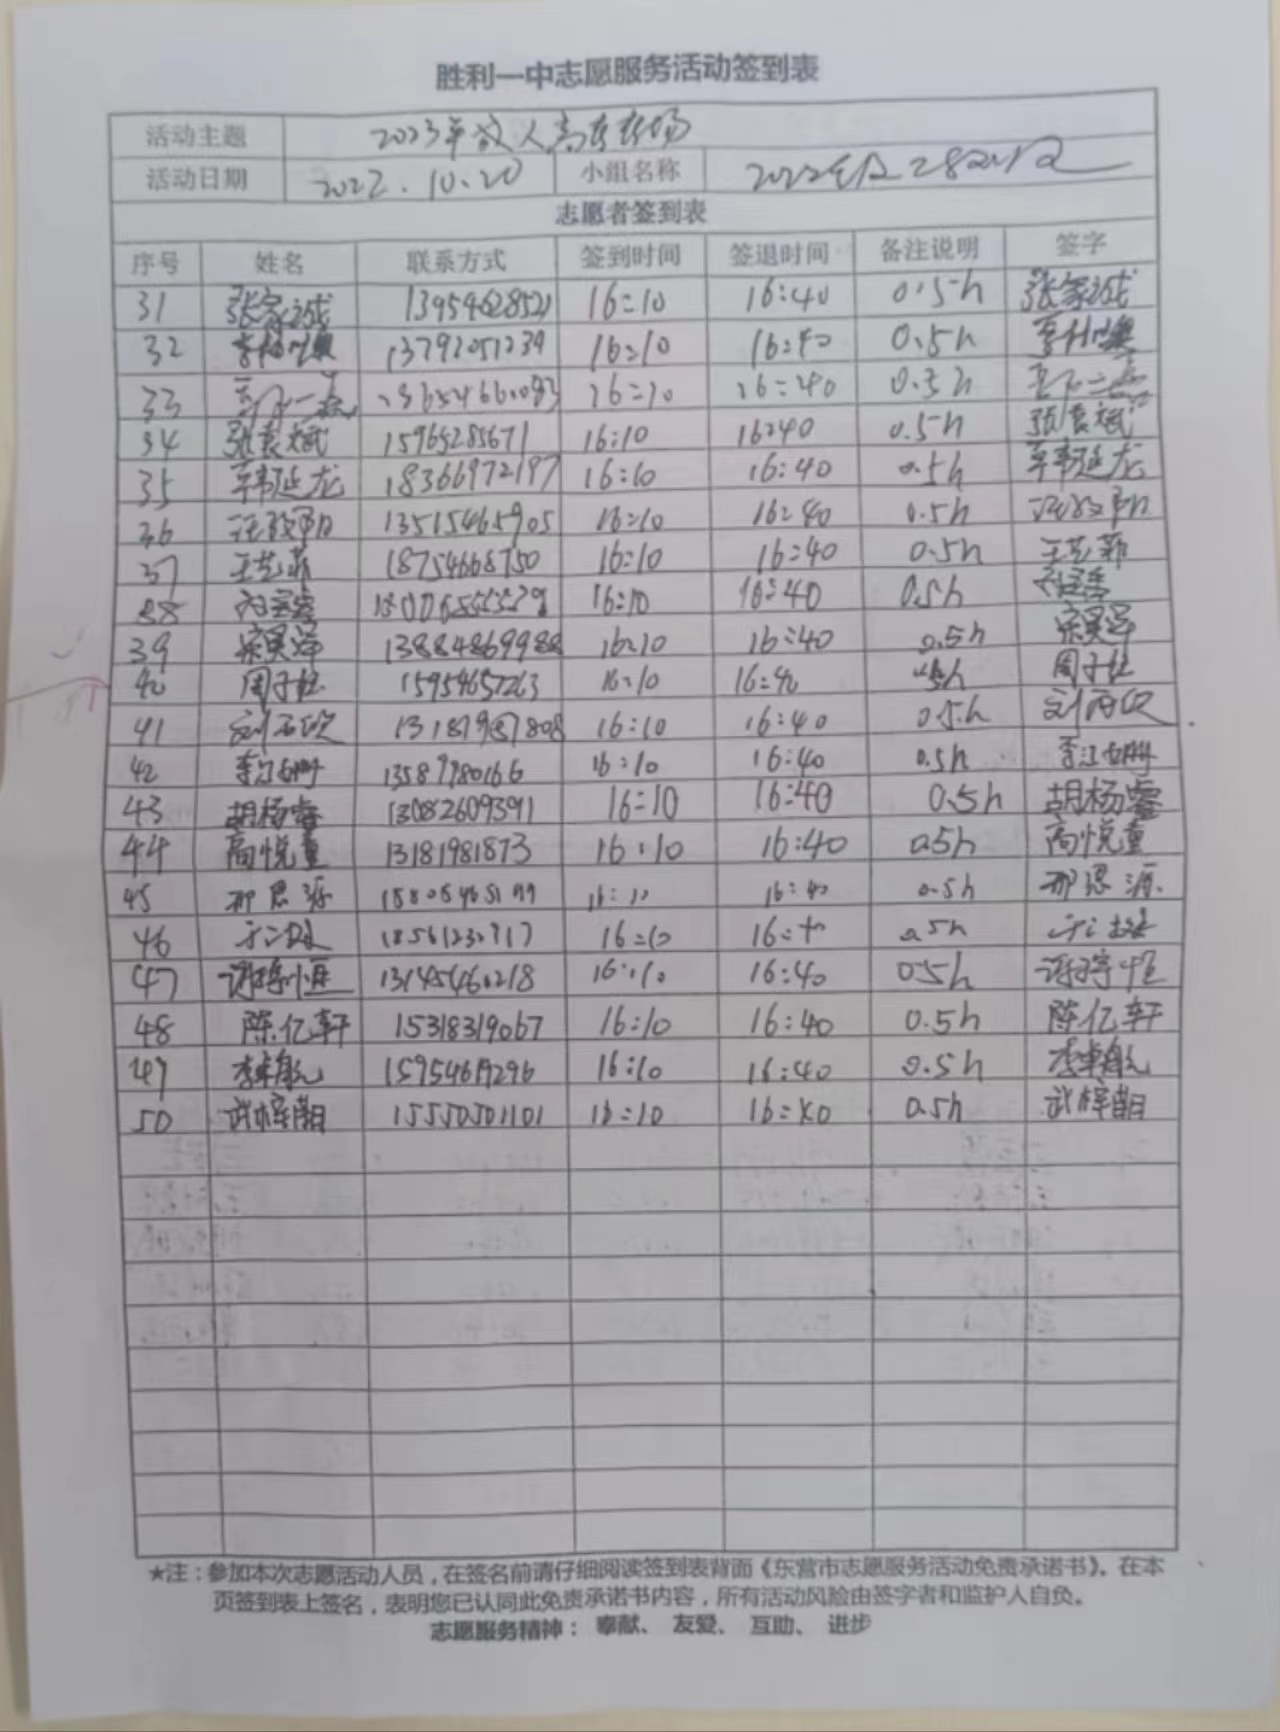 胜利一中志愿服务活动签到表
活动主题 2023年成人高考考场
活动日期 2022.10.20 小组名称 2022级28
志愿者签到表
序号 姓名 联系方式 签到时间 签退时间 备注说明 签字
31 张家诚 13954628521 16:10 16:40 0.5h 张家诚
32 13792051239 16:10 16:40 0.5h
33 16:10 16:40 0.5h
34 张袁斌 15965285671 16:10 16:40 0.5h 张袁斌
35 韩延龙 18366972197 16:10 16:40 0.5h 韩延龙
36 13515465905 16:10 16:40 0.5h
37 王艺菲 18754668750 16:10 16:40 0.5h 王艺菲
38 16:10 16:40 0.5h
39 宋昊洋 13884869988 16:10 16:40 0.5h 宋昊洋
40 周子 15954657263 16:10 16:40 周子
41 刘 16:10 16:40 0.5h 刘
42 李江 13589980166 16:10 16:40 0.5h 李江
43 胡杨睿 13082609391 16:10 16:40 0.5h 胡杨睿
44 高悦童 13181981873 16:10 16:40 0.5h 高悦童
45 邢思源 16:10 16:40 0.5h 邢思源
46 16:10 0.5h
47 谢梓恒 13145460218 16:10 16:40 0.5h 谢梓恒
48 陈亿轩 15318319067 16:10 16:40 0.5h 陈亿轩
49 李卓航 16:10 16:40 0.5h 李卓航
50 武梓朝 15550501101 16:10 0.5h 武梓朝
★注：参加本次志愿活动人员，在签名前请仔细阅读签到表背面《东营市志愿服务活动免责承诺书》。在本
页签到表上签名，表明您已认同此免责承诺书内容，所有活动风险由签字者和监护人自负。
志愿服务精神： 奉献、 友爱、 互助、 进步